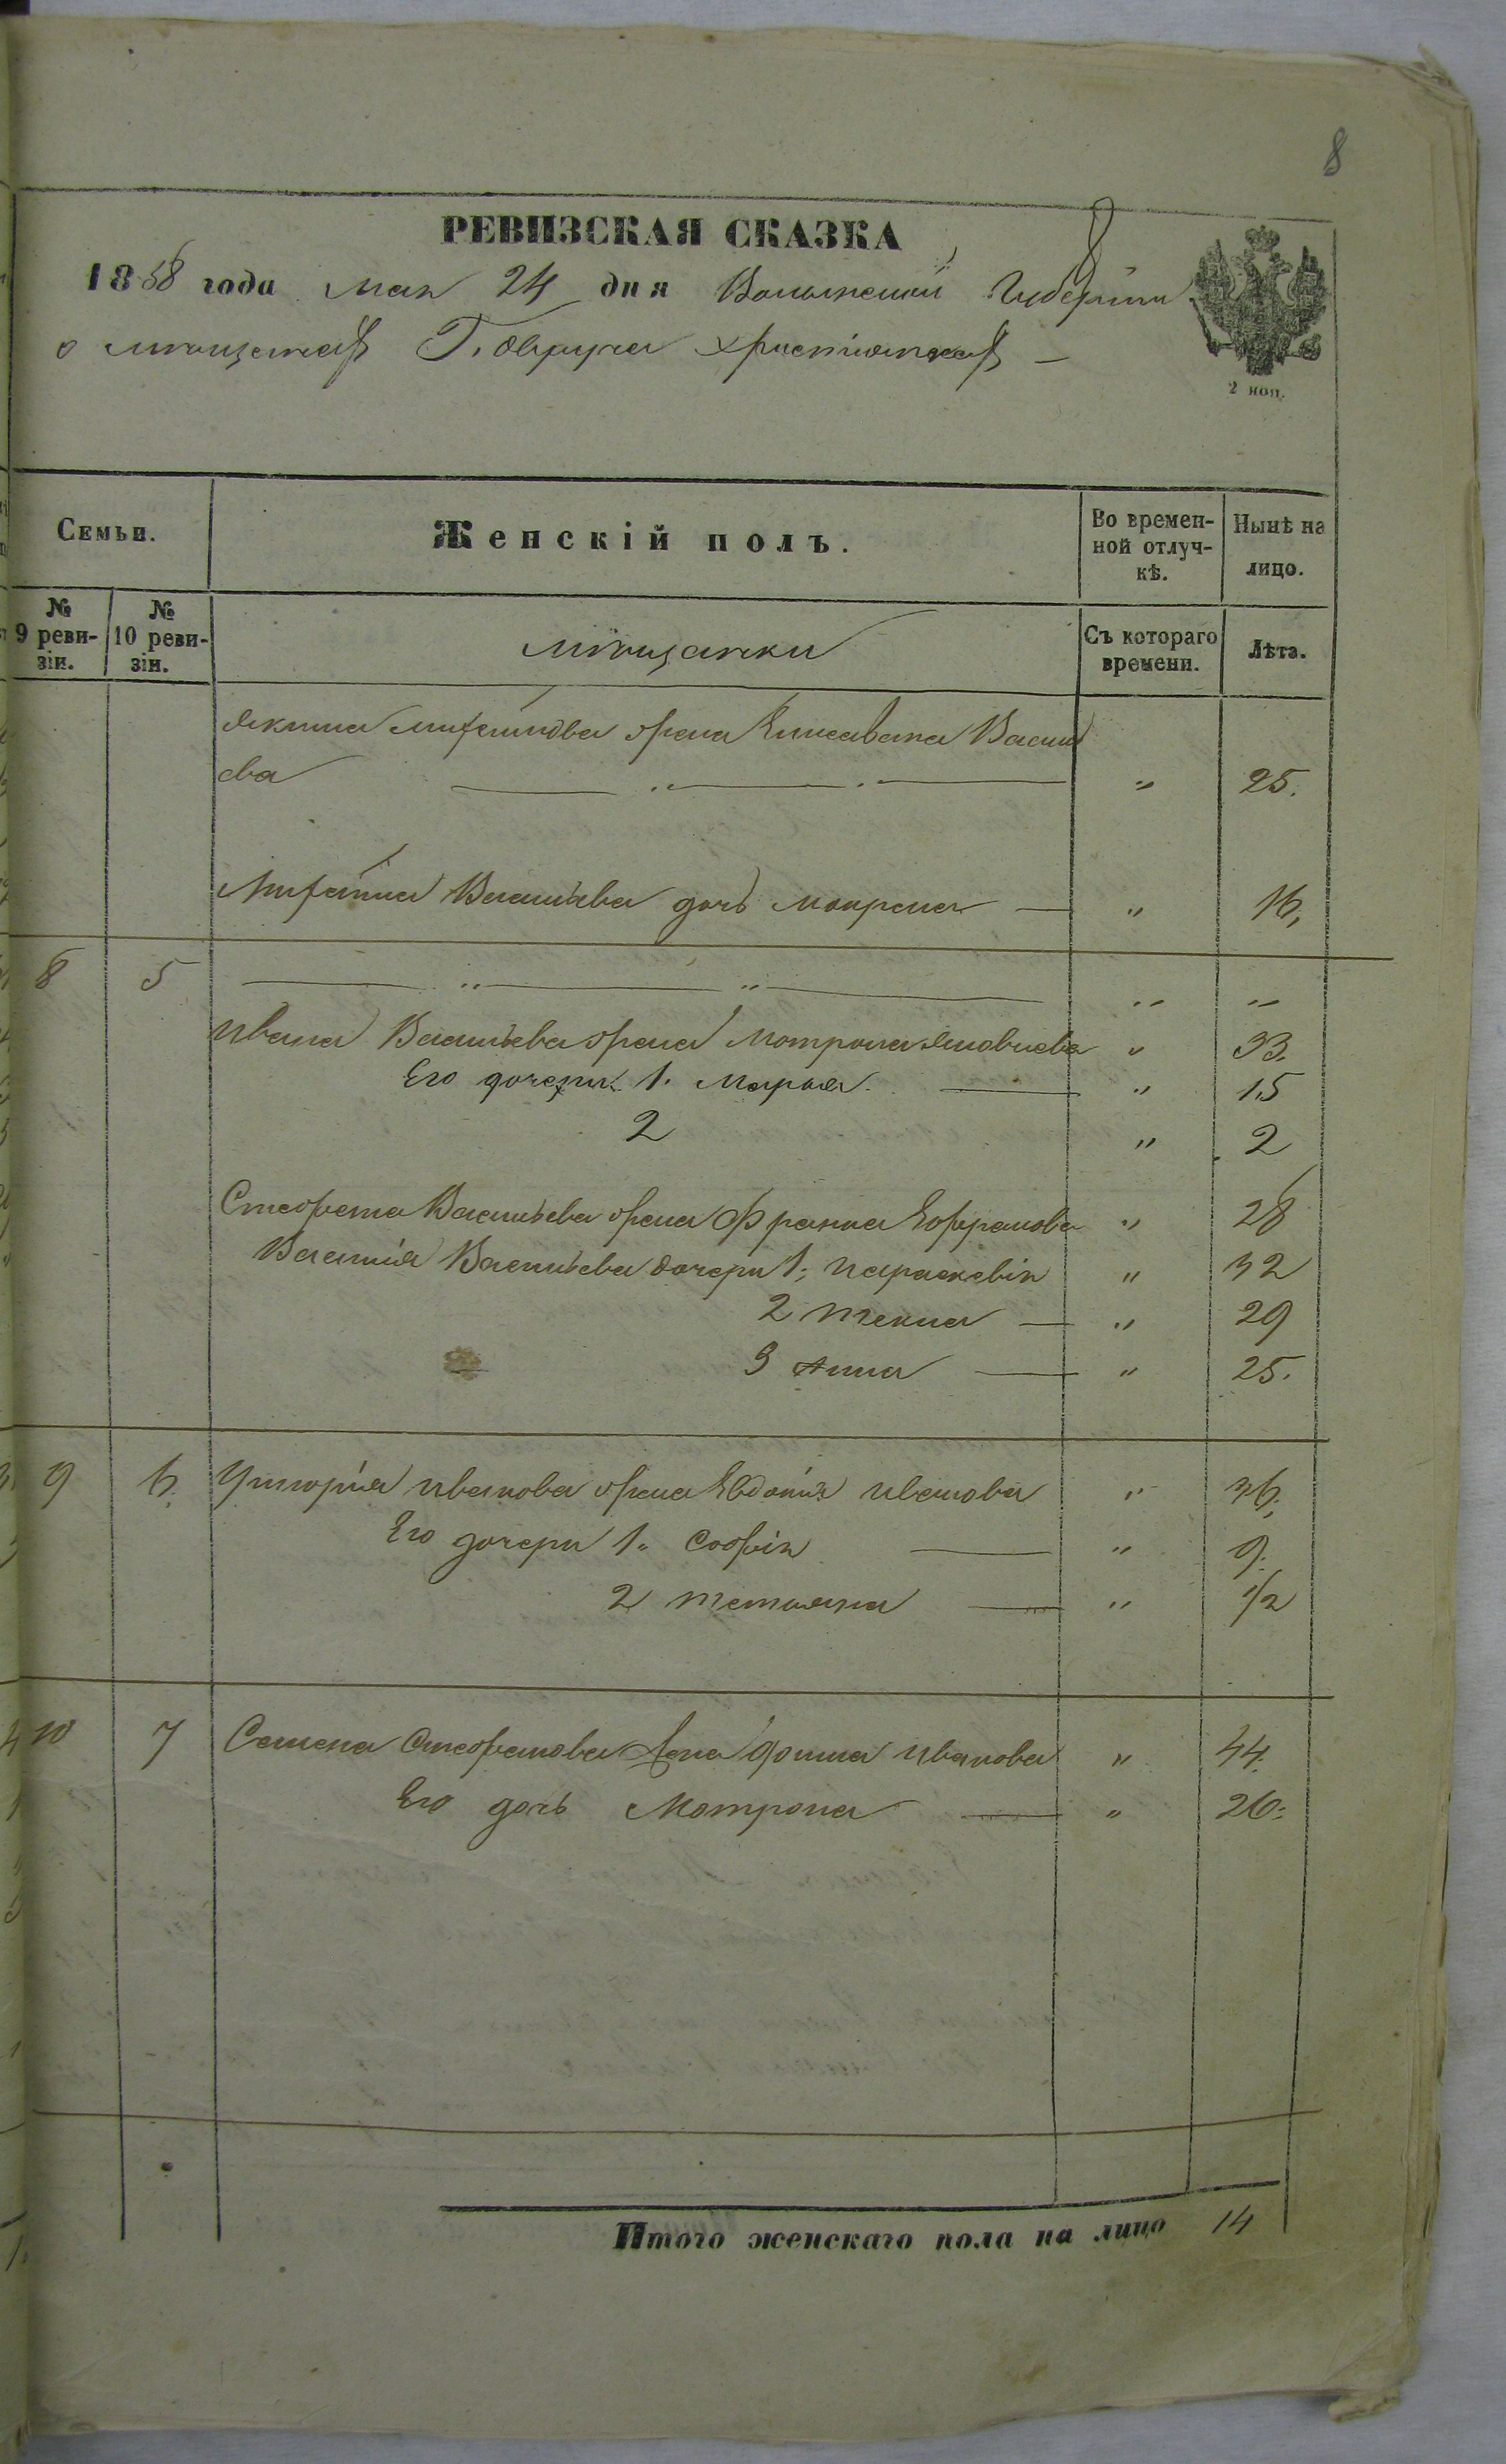 8
РЕВИЗСКАЯ СКАЗКА
1858 года Мая 24 дня Волынской Губернии
о мѣщанахъ Г. Овруча христіанахъ —
2 коп.
Семьи.
Женскій полъ.
Во времен-
ной отлуч-
кѣ.
Нынѣ на
лицо.
№
9 реви-
зіи.
№
10 реви-
зіи.
мѣщанки
Съ котораго
времени.
Лѣта.
Якима жена Елисавета Василь
ева — „ — „ — „ 25.
Васильева дочь Мокрена — „ 16,
8 5 — „ — „ — „ „
Ивана Васильева жена Матрона „ 33.
Его дочери 1. Марья — „ 15
2 „ 2
Стефана Васильева жена „ 28
Василія Васильева дочери 1; Параскевія „ 32
2 Текла — „ 29
3 Анна — „ 25.
9 6. Григорія Иванова жена Евдокія Иванова „ 36;
Его дочери 1. Софія — „ 9.
2 Татьяна — „ 1/2
10 7 Семена Стефанова жена Иванова „ 44.
Его дочь Матрона — „ 20:
Итого женскаго пола на лицо 14